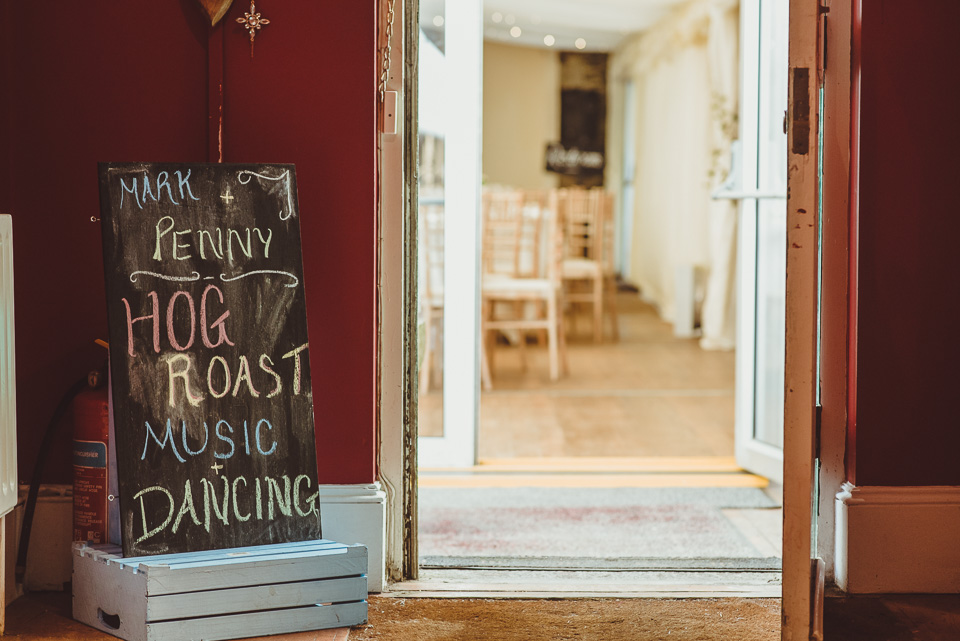 MARK +
PENNY
HOG
ROAST
MUSIC
+
DANCING